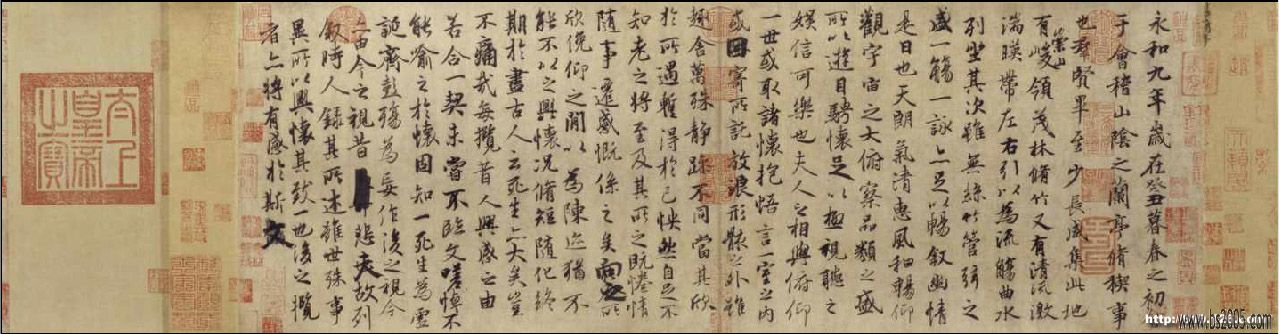 永和九年歲在癸丑暮春之初
于會稽山陰之蘭亭脩稧事
也群賢畢至少長咸集此地
有崇山峻領茂林脩竹又有清流激
湍暎帶左右引以為流觴曲水
列坐其次雖無絲竹管弦之
盛一觴一詠亦足以暢敘幽情
是日也天朗氣清惠風和暢仰
觀宇宙之大俯察品類之盛
所以遊目騁懷足以極視聽之
娛信可樂也夫人之相與俯仰
一世或取諸懷抱悟言一室之內
或因寄所託放浪形骸之外雖
趣舍萬殊靜躁不同當其欣
於所遇暫得於己怏然自足不
知老之將至及其所之既惓情
隨事遷感慨係之矣向之所
欣俛仰之閒以為陳迹猶不
能不以之興懷況脩短隨化終
期於盡古人云死生亦大矣豈
不痛哉每攬昔人興感之由
若合一契未嘗不臨文嗟悼不
能喻之於懷固知一死生為虛
誕齊彭殤為妄作後之視今
亦由今之視昔悲夫故列
敘時人錄其所述雖世殊事
異所以興懷其致一也後之攬
者亦將有感於斯文
太上
皇帝
之寶